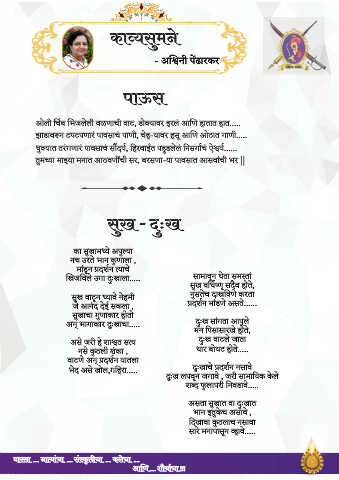 काव्यसुमने
- अश्विनी पेंढारकर
पाऊस
ओली चिंब भिजलेली वळणाची वाट, डोक्यावर इरलं आणि हातात हात.....
झाडावरून टपटपणारं पावसाचं पाणी, चेहऱ्यावर हसू आणि ओठात गाणी.....
धुक्यात तरंगणारं पावसाचं सौंदर्य, हिरवाईत पहुडलेलं निसर्गाचं ऐश्वर्य......
तुमच्या माझ्या मनात आठवणींची सर, बरसणाऱ्या पावसात आसवांची भर ||
सुख - दुःख
का सुखामध्ये अपुल्या
नच उरते भान कुणाला ,
मांडून प्रदर्शन त्याचे
खिजविले उगा दुःखाला.....
सुख वाटून घ्यावे नेहमी
जे आनंद देई सकला ,
सुखाचा गुणाकार होतो
अन् भागाकार दुःखाचा.....
असे जरी हे शाश्वत सत्य
नसे कुठली शंका ,
वाटणे अन् प्रदर्शन यातला
भेद असे खोल,गहिरा.....
सामावून घेता समस्तां
सुख वर्धिष्णू सदैव होते,
नुसतेच दाखविणे करता
प्रदर्शन मांडणे असते......
दुःख सांगता आपुले
मन पिसासारखे होते,
दुःख वाटले जाता
धार बोथट होते.....
दुःखाचे प्रदर्शन नसावे
दुःख लपवून जगावे , जरी साभाधिक केले
शब्द फुलापरी निवडावे.....
असता सुखात वा दुःखात
भान इतुकेच असावे ,
दिखावा कुठलाच नसावा
सारे मनापासून व्हावे.....
वारसा ... जात्यांचा ... संस्कृतीचा ... कलेचा ...
आणि... शौर्याचा !!!